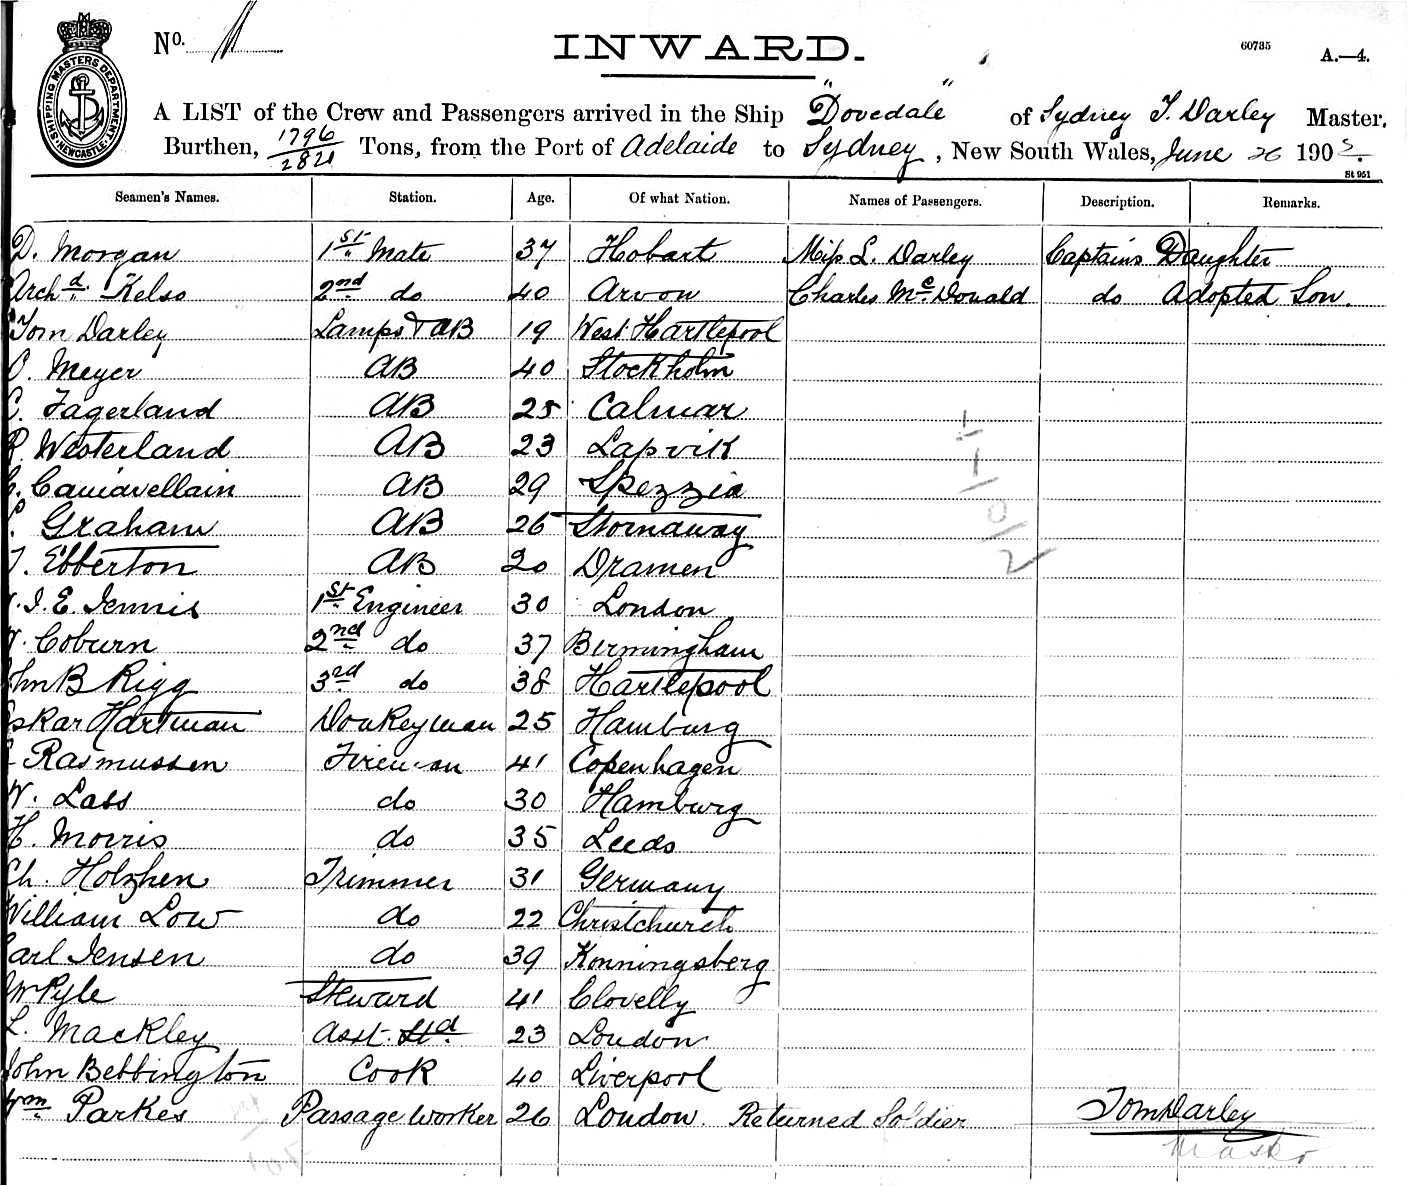 No.
INWARD.
60735
A.—4.
SHIPPING MASTERS DEPARTMENT NEWCASTLE
A LIST of the Crew and Passengers arrived in the Ship "Dovedale" of Sydney T. Darley Master,
Burthen, 1796/2821 Tons, from the Port of Adelaide to Sydney, New South Wales, June 26 190
St 951
Seamen's Names. Station. Age. Of what Nation. Names of Passengers. Description. Remarks.
D. Morgan 1st Mate 37 Hobart Miss L. Darley Captains Daughter
Archd Kelso 2nd do 40 Arvon Charles McDonald do Adopted Son.
Tom Darley Lamps & AB 19 West Hartlepool
O. Meyer AB 40 Stockholm
C. Fagerland AB 25 Calmar
R. Westerland AB 23 Lapvik
AB 29 Spezzia
Graham AB 26 Stornaway
T. Ebberton AB 20 Dramen
I. E. Jennis 1st Engineer 30 London
Coburn 2nd do 37 Birmingham
ohn B Rigg 3rd do 38 Hartlepool
skar Hartman Donkeyman 25 Hamburg
Rasmussen Fireman 41 Copenhagen
W. Lass do 30 Hamburg
H. Morris do 35 Leeds
Ch. Holzhen Trimmer 31 Germany
William Low do 22 Christchurch
Carl Jensen do 39 Konningsberg
W Pyle Steward 41 Clovelly
L. Mackley Asst. Std. 23 London
John Bebbington Cook 40 Liverpool
Wm Parkes Passage Worker 26 London. Returned Soldier Tom Darley
Master